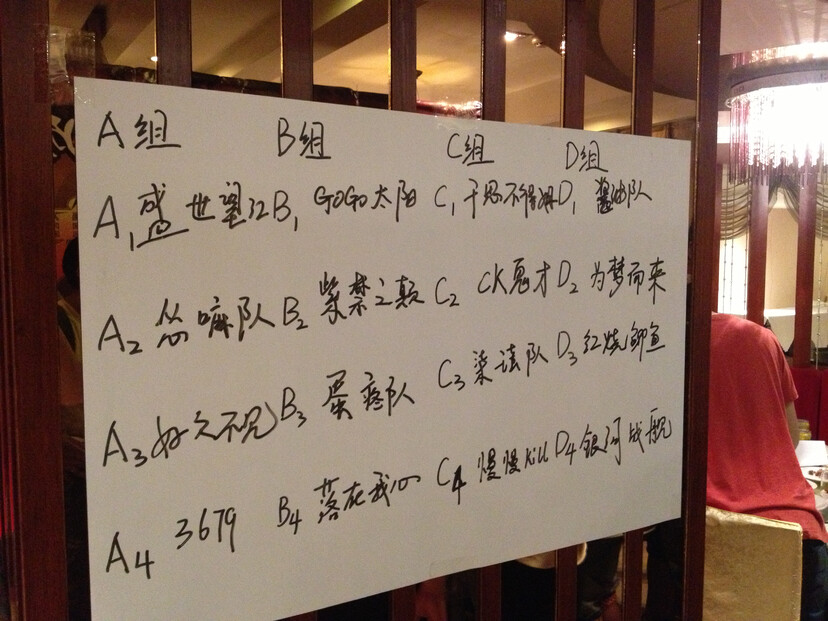 A组 B组 C组 D组
A1 盛世望江 B1 GOGO太阳 C1 于思不得姆 D1 酱油队
A2 怂嘛队 B2 紫禁之颠 C2 CK鬼才 D2 为梦而来
A3 好久不见 B3 蛋疼队 C3 染 队 D3 红烧鲫鱼
A4 3679 B4 落在我心 C4 慢慢kill D4 银河战舰